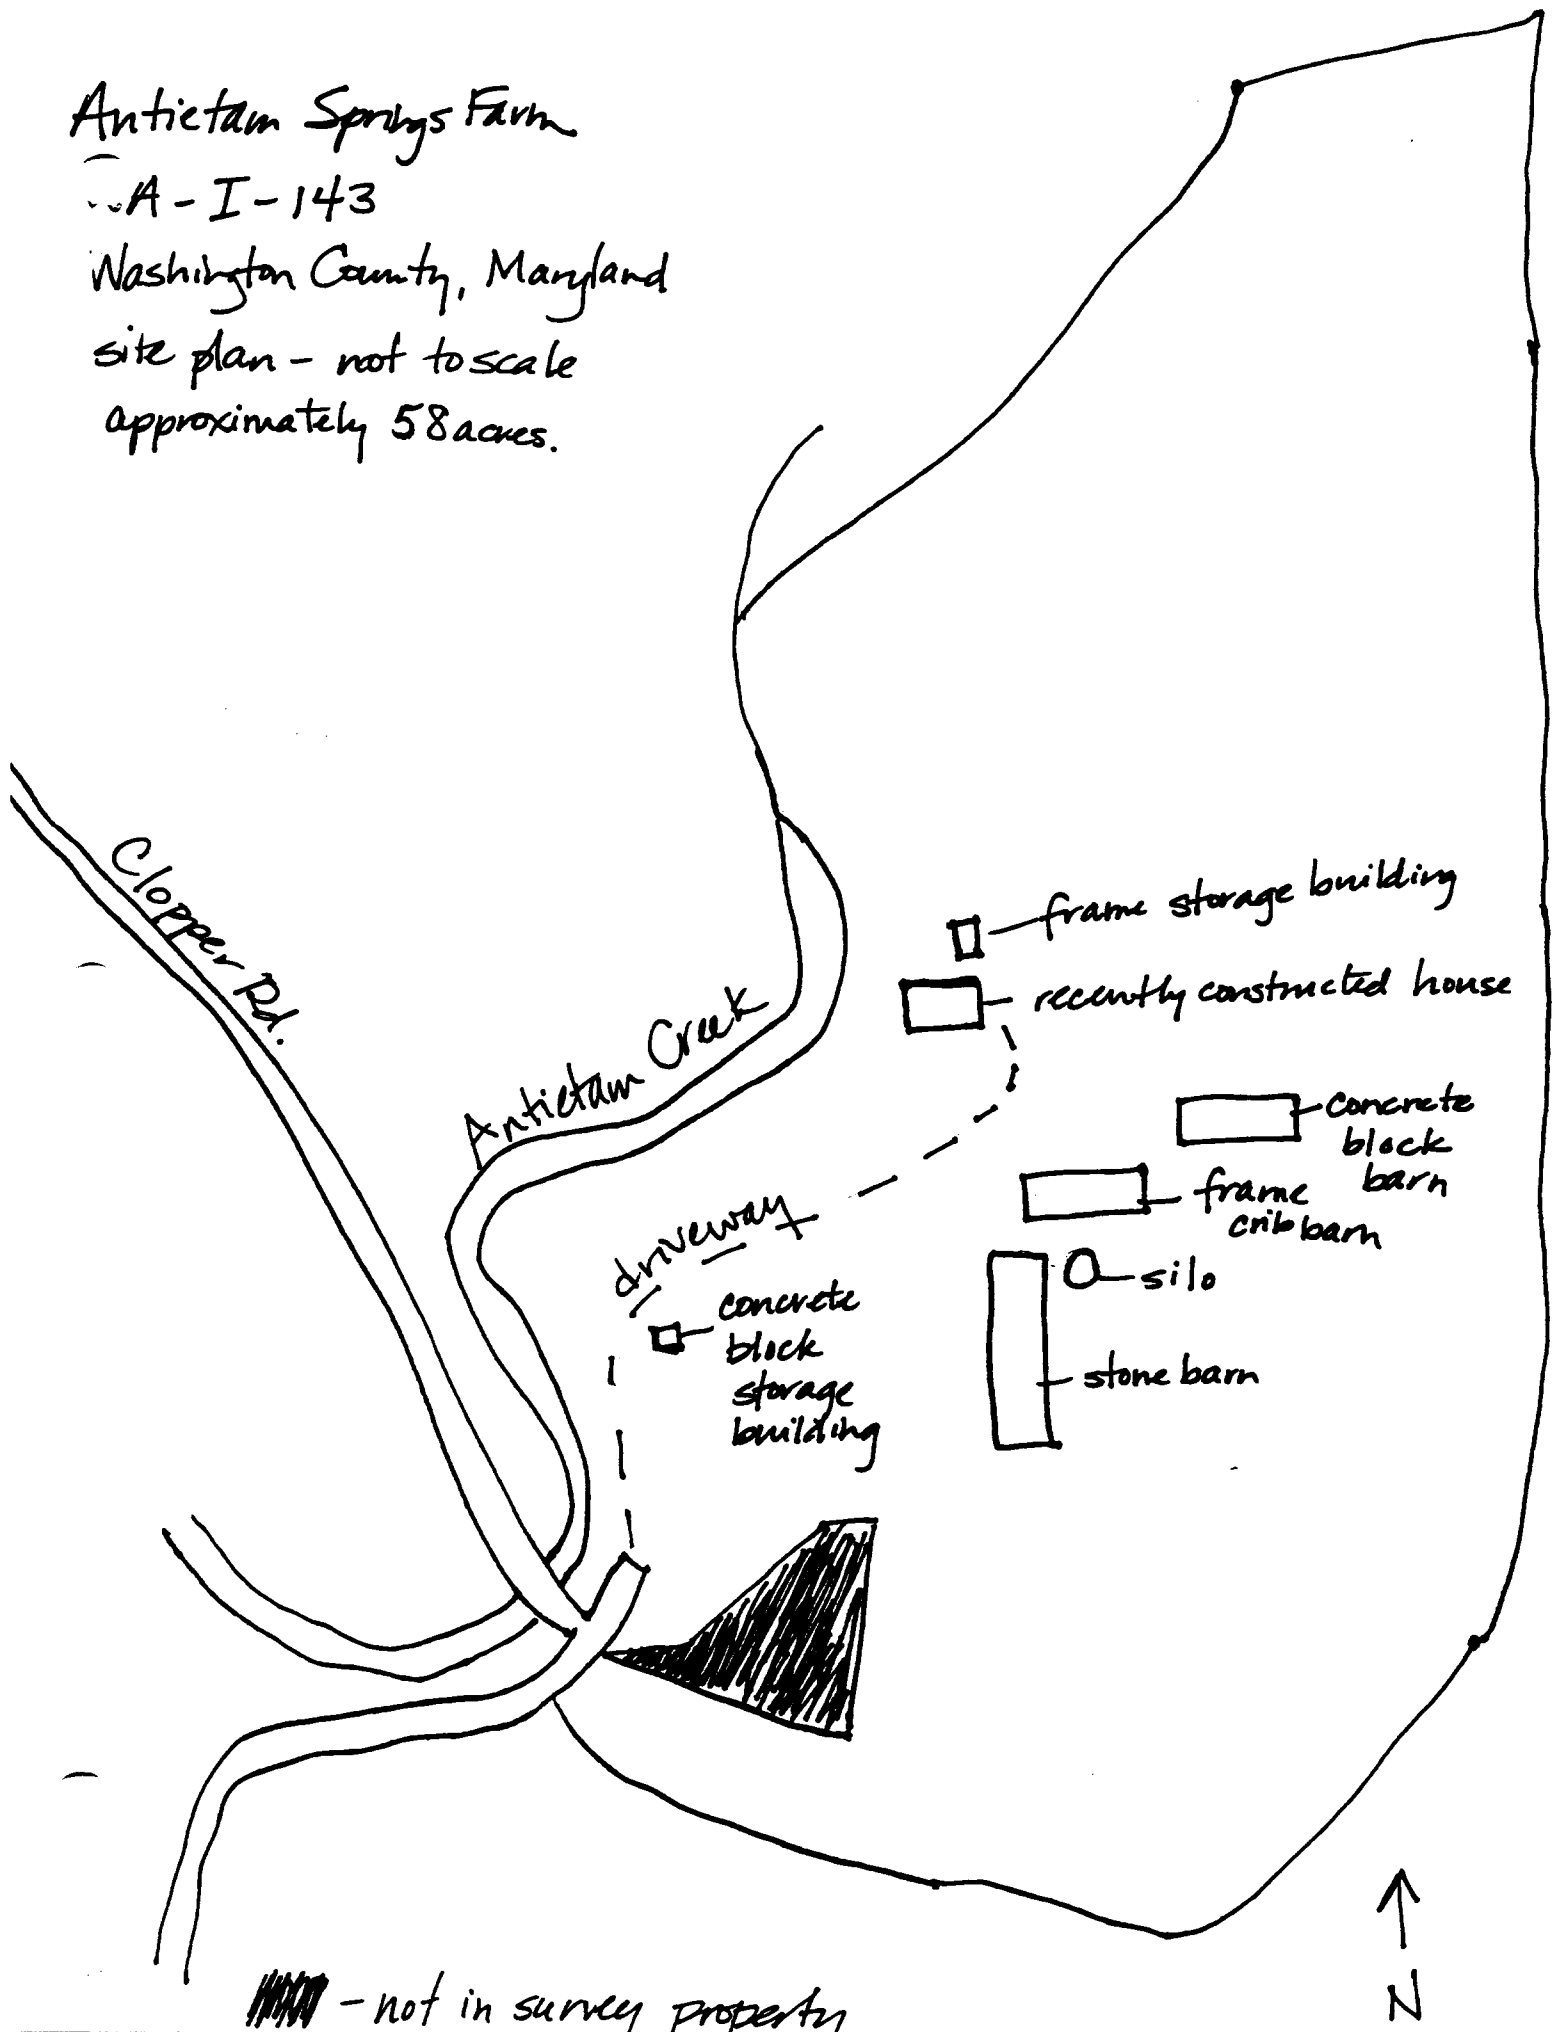 Antietam Springs Farm
A-I-143
Washington County, Maryland
site plan - not to scale
approximately 58 acres.
Clopper Rd.
Antietam Creek
frame storage building
recently constructed house
concrete
block
barn
frame
crib barn
silo
stone barn
driveway
concrete
block
storage
building
N
- not in survey property